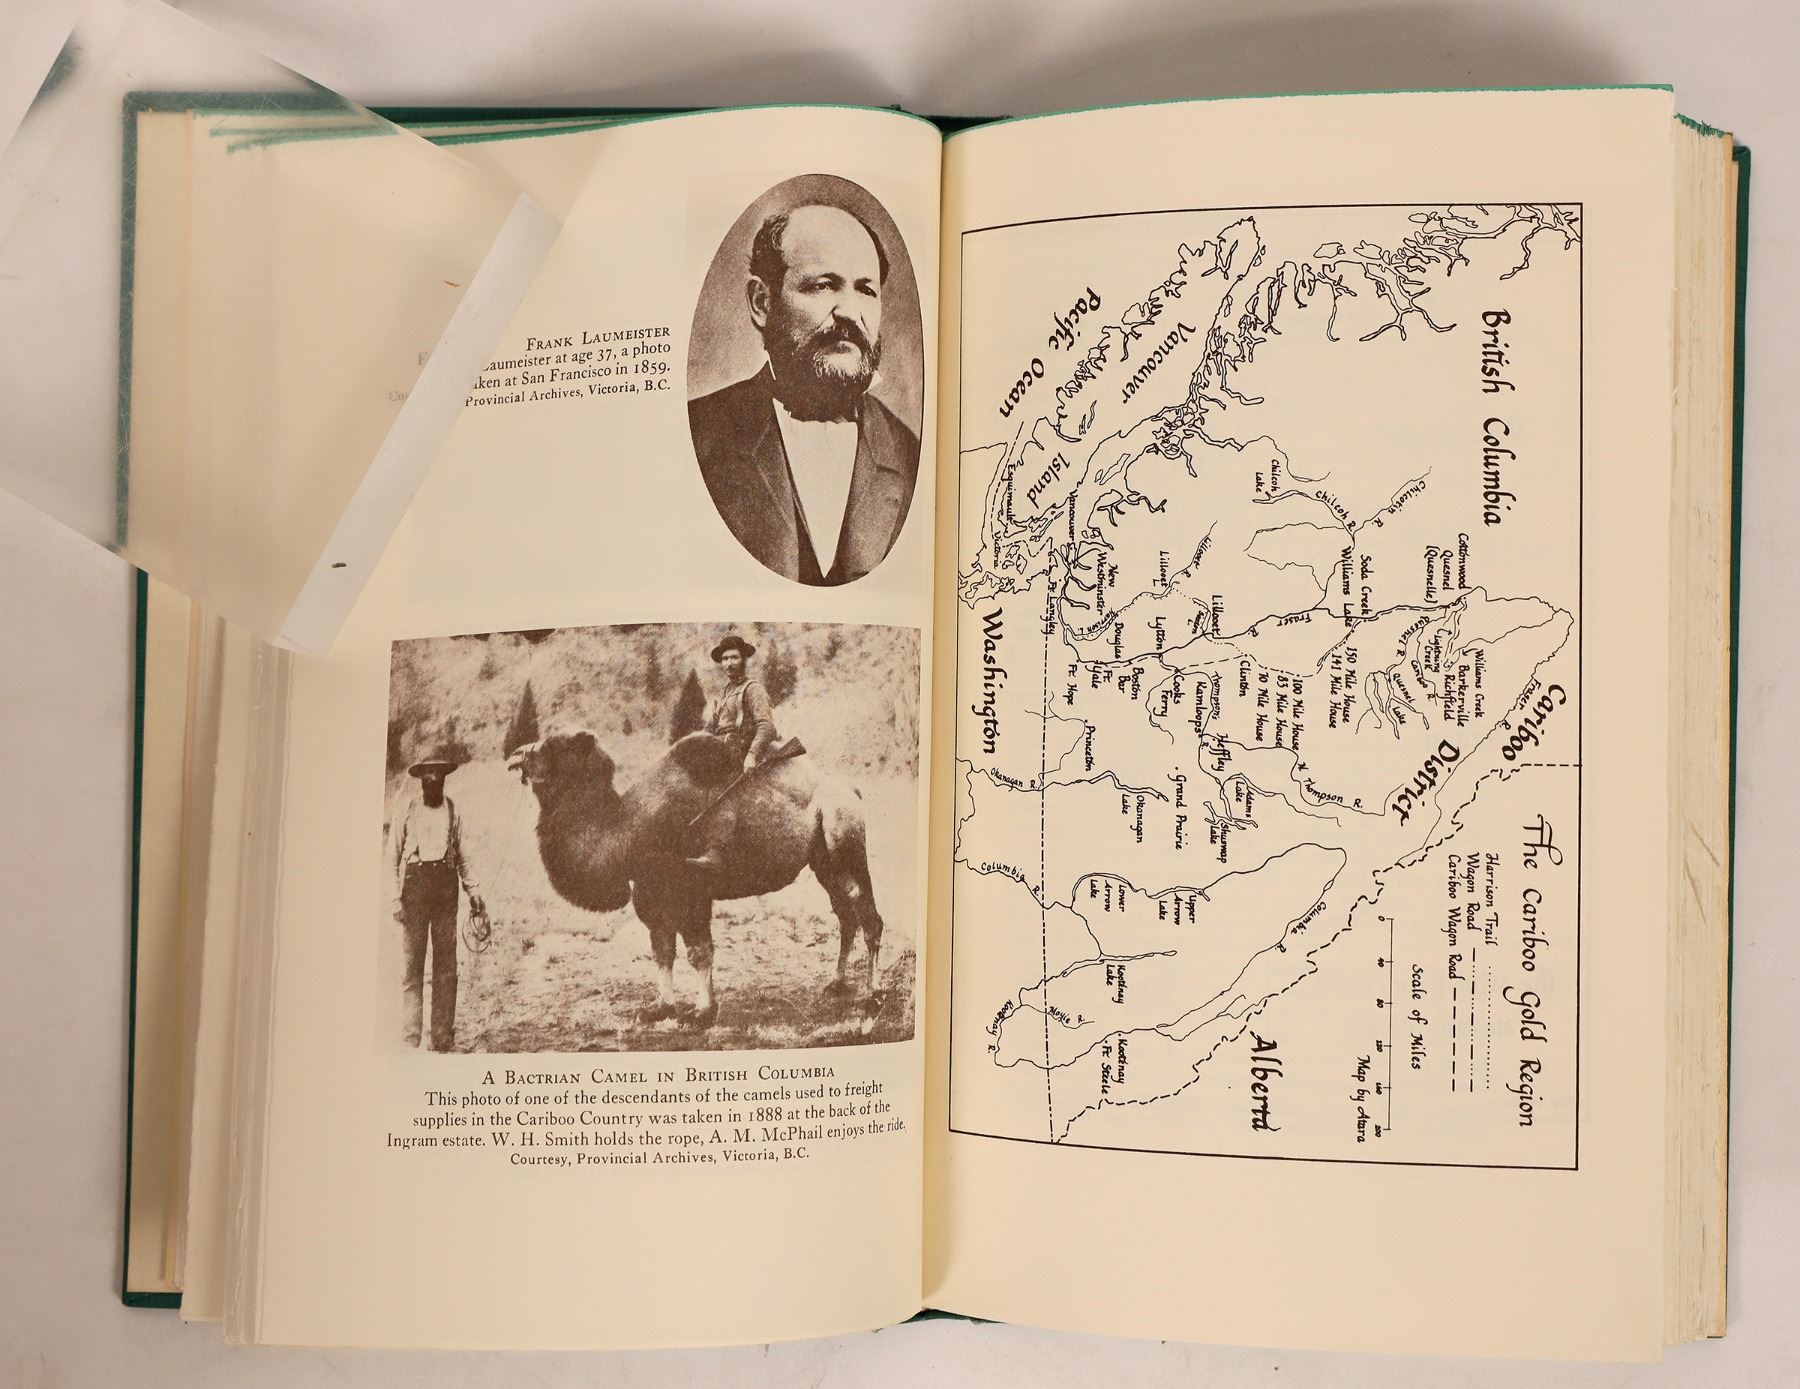 FRANK LAUMEISTER
Laumeister at age 37, a photo
taken at San Francisco in 1859.
Provincial Archives, Victoria, B.C.
A BACTRIAN CAMEL IN BRITISH COLUMBIA
This photo of one of the descendants of the camels used to freight
supplies in the Cariboo Country was taken in 1888 at the back of the
Ingram estate. W. H. Smith holds the rope, A. M. McPhail enjoys the ride.
Courtesy, Provincial Archives, Victoria, B.C.
The Cariboo Gold Region
Harrison Trail
Wagon Road
Cariboo Wagon Road
Scale of Miles
0 40 80 120 160 200
Map by Atara
British Columbia
Cariboo
District
Alberta
Washington
Pacific Ocean
Vancouver
Island
Chilcotin R.
Chilcoh R.
Chilcoh
Lake
Cottonwood
Quesnel
(Quesnelle)
Soda Creek
Williams Lake
Williams Creek
Barkerville
Richfield
Lightning
Creek
Cariboo R.
Quesnel R.
Quesnel Lake
Fraser R.
150 Mile House
141 Mile House
100 Mile House
83 Mile House
70 Mile House
Clinton
Fraser R.
Lillooet R.
Lillooet
L.
Lillooet
Lytton
Cooks
Ferry
Thompson R.
Kamloops
Heffley
N. Thompson R.
Adams
Lake
Shuswap
Lake
Grand Prairie
Boston
Bar
Ft.
Yale
Ft. Hope
Douglas
New
Westminster
Vancouver
Ft. Langley
Esquimault
Victoria
Princeton
Okanagan R.
Okanagan
Lake
Columbia R.
Upper
Arrow
Lake
Lower
Arrow
Lake
Columbia R.
Kootnay
Lake
Kootenay R.
Moyie R.
Kootnay
Ft. Steele